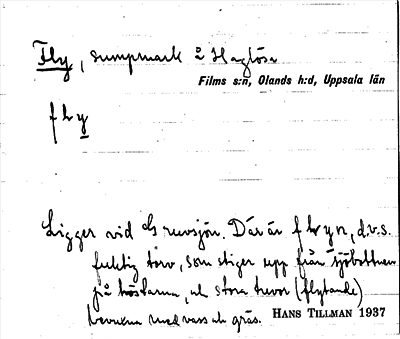 Fly, sumpmark å Haglösa
Films s:n, Olands h:d, Uppsala län
fly
Ligger vid Gruvsjön. Där är flyn, d.v.s.
fuktig torv, som stiger upp från sjöbottnen
på höstarna, och stora tuvor (flytande)
bevuxna med vass och gräs. HANS TILLMAN 1937